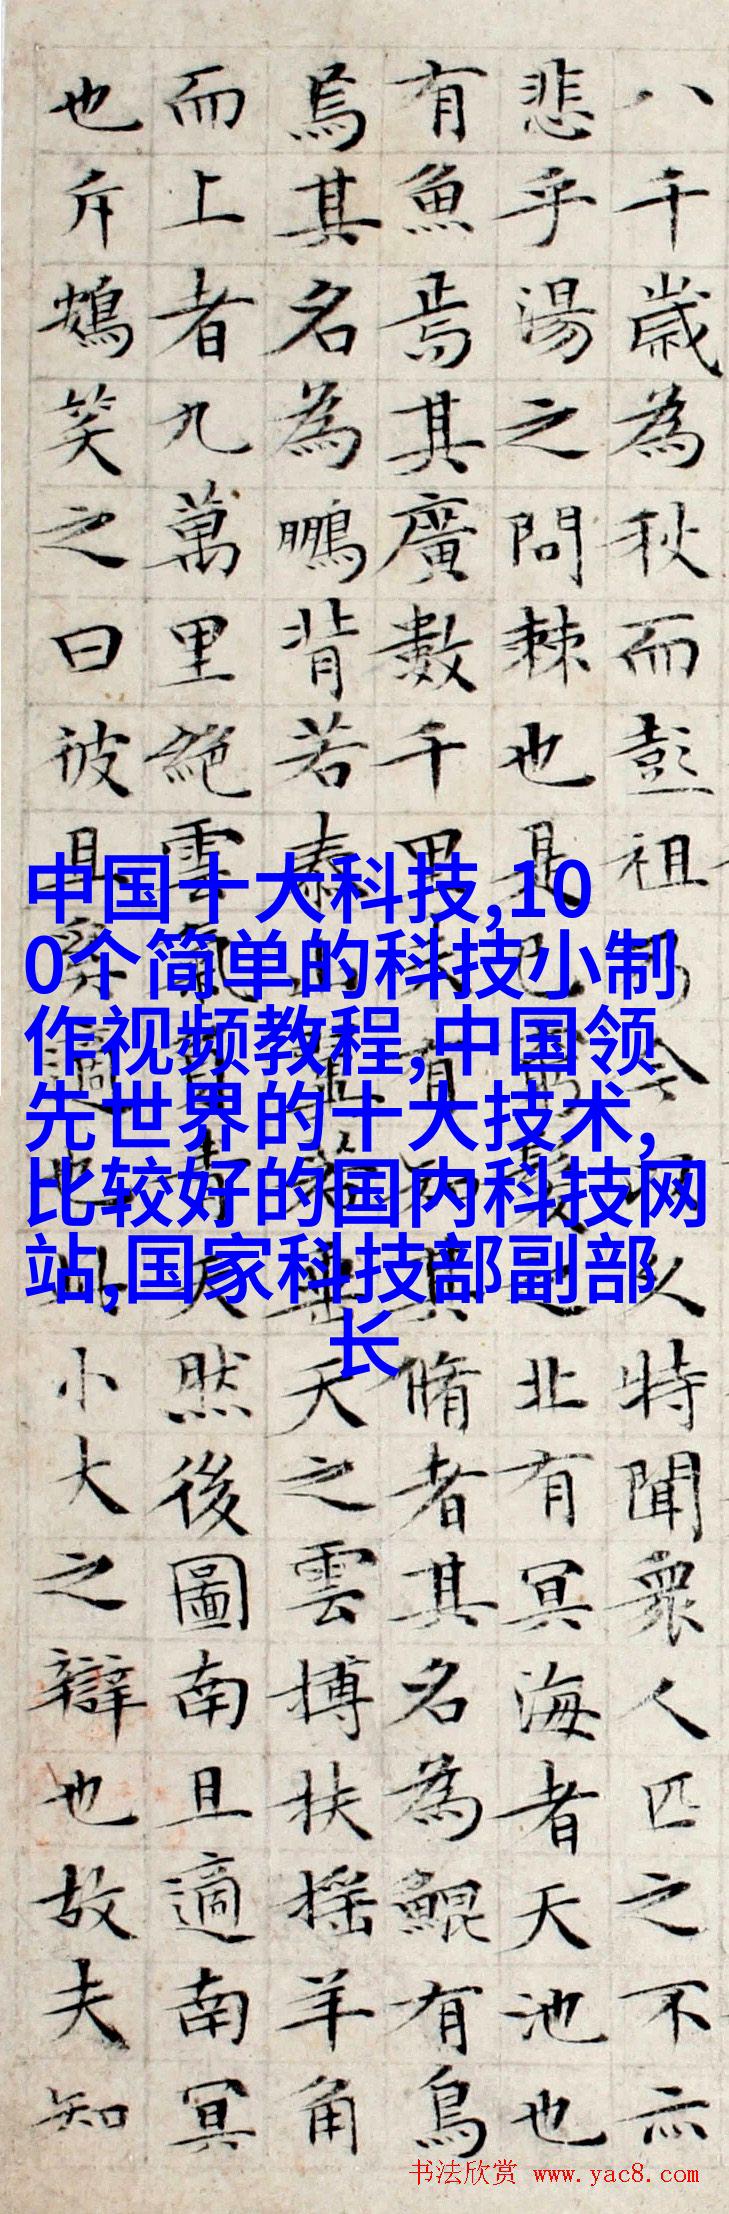 八千歲為秋而彭祖乃今以久特聞眾人匹之不亦
悲乎湯之問棘也是已窮髮之北有冥海者天池也
有魚焉其廣數千里未有知其脩者其名為鯤有鳥
焉其名為鵬背若泰山翼若垂天之雲搏扶搖羊角
而上者九萬里絕雲氣負青天然後圖南且適南冥
也斥鴳笑之曰彼且奚適也此小大之辯也故夫知
中国十大科技,10
0个简单的科技小制
作视频教程,中国领
先世界的十大技术,
比较好的国内科技网
站,国家科技部副部
长
书法欣赏 www.yac8.com